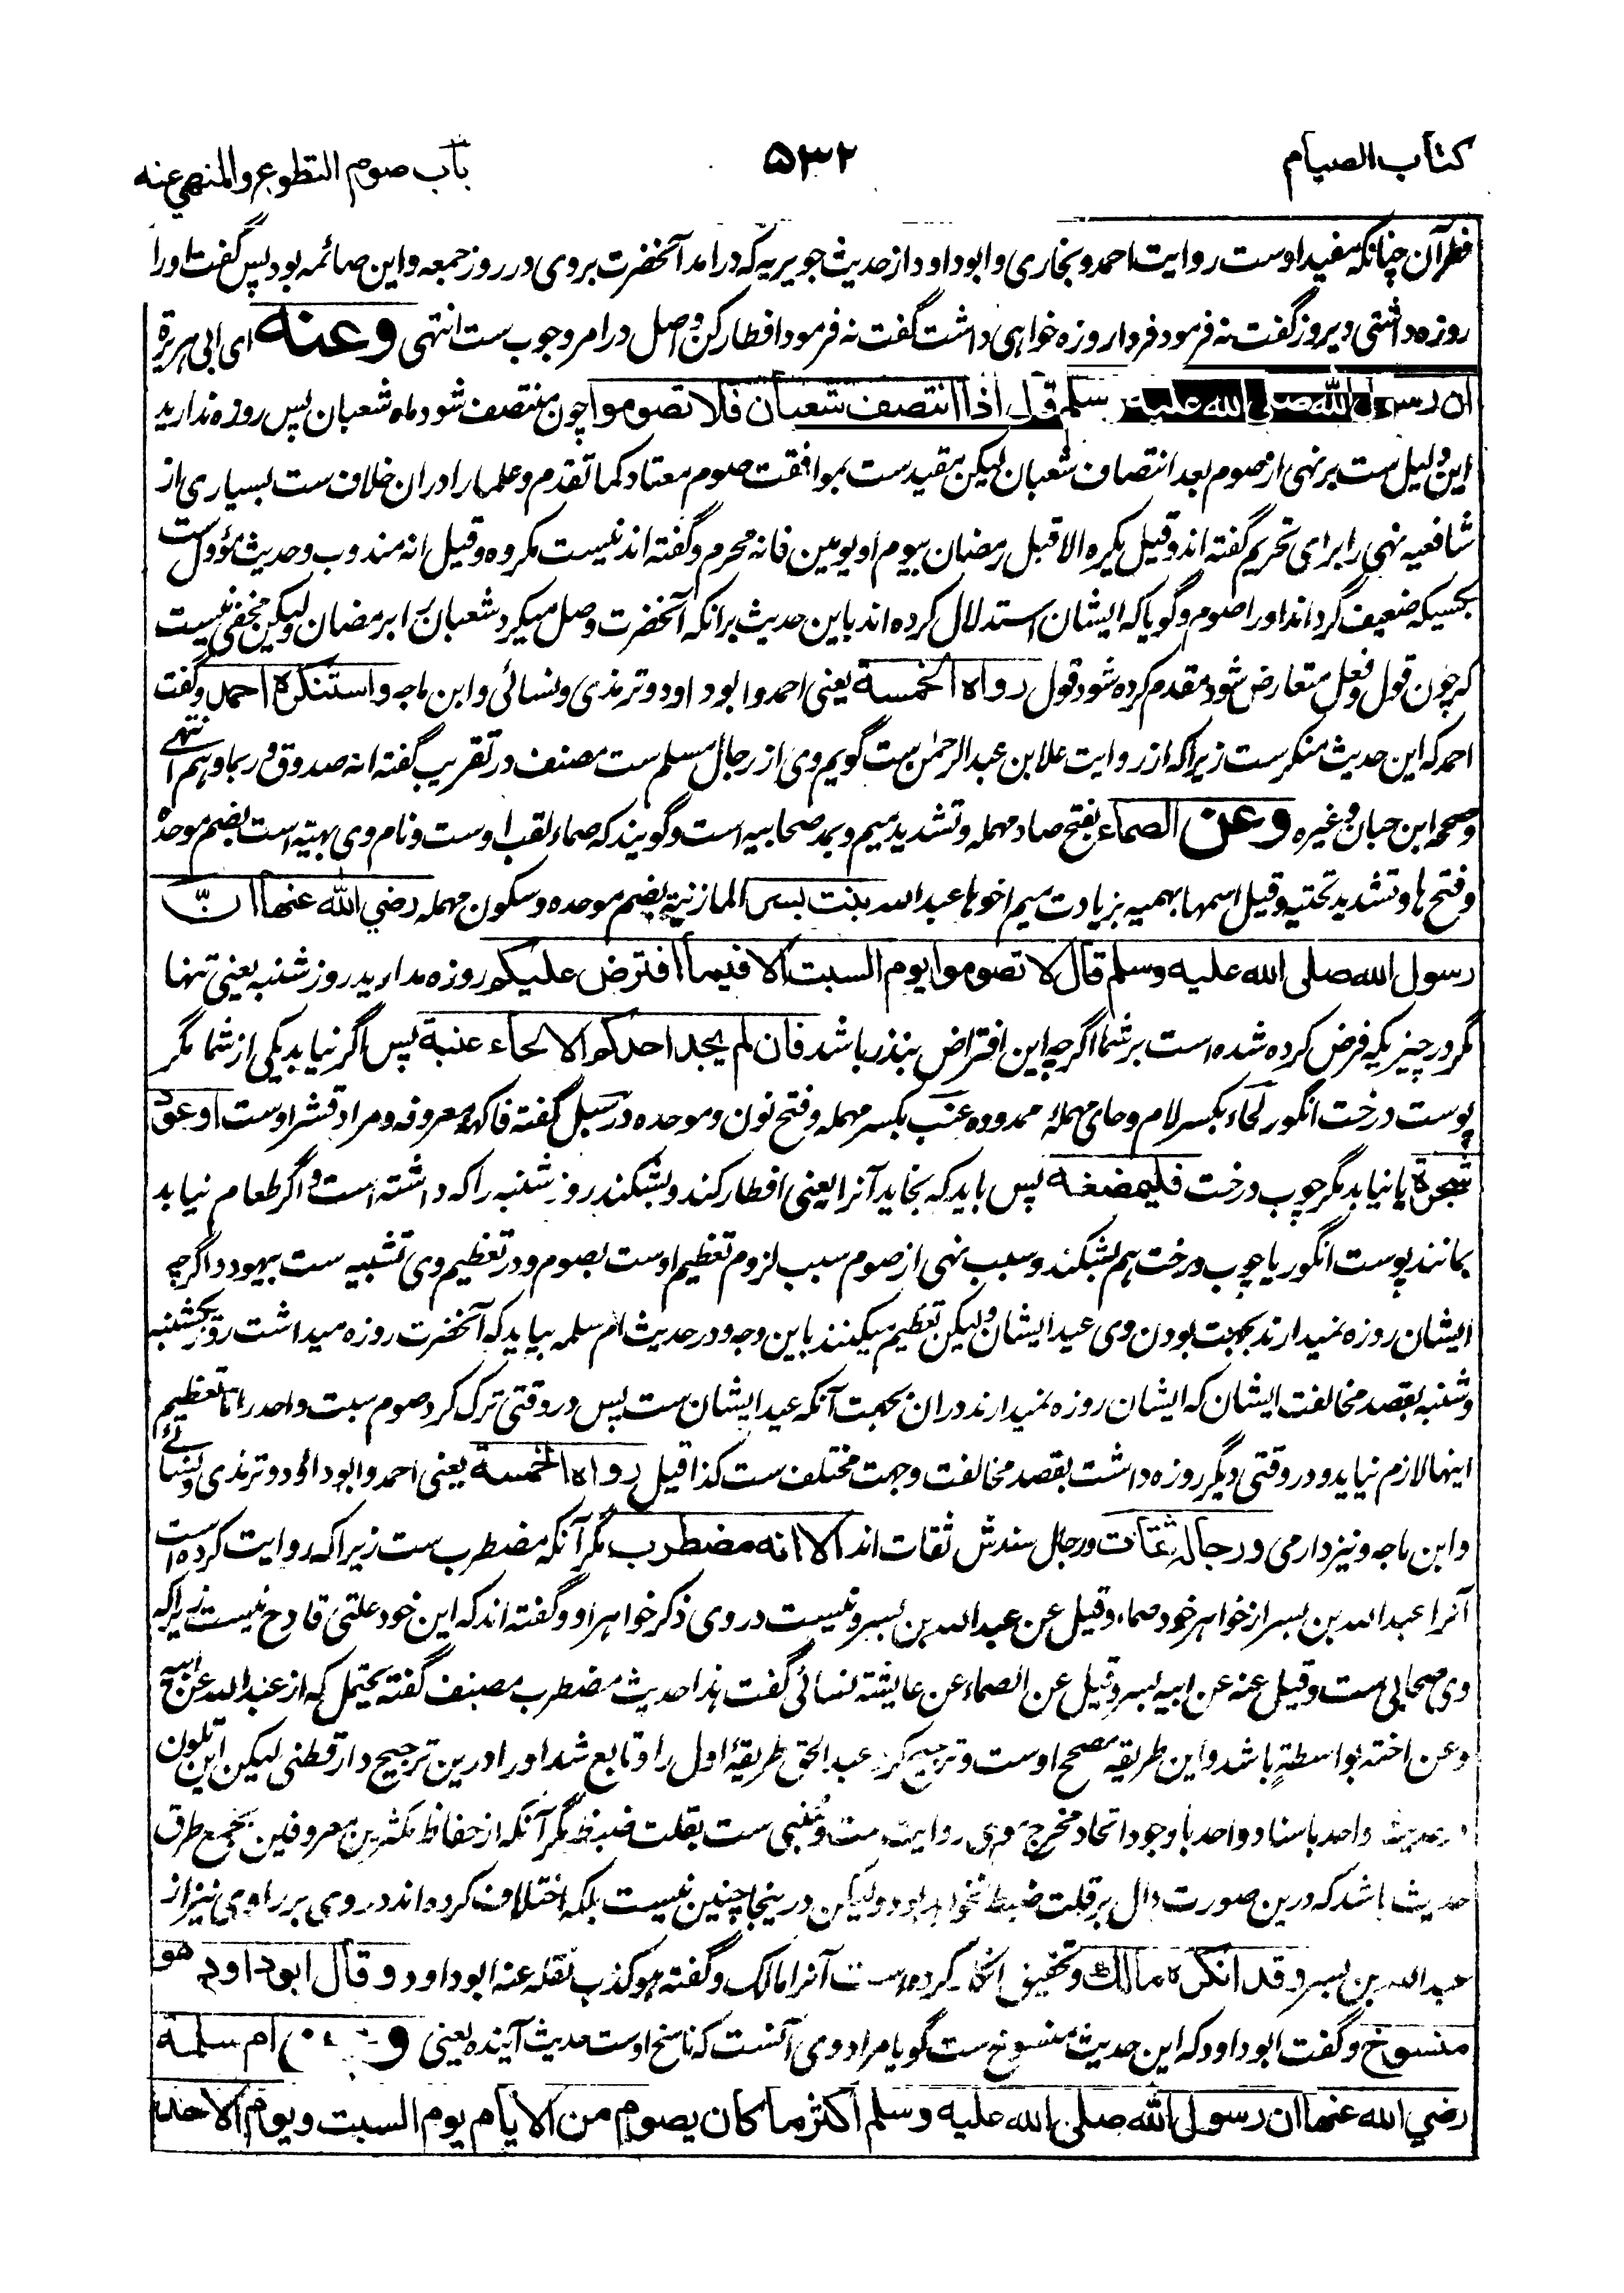 کتاب الصیام
۵۳۲
باب صوم التطوع والمنهي عنه
فطر آن چنانکه مفید اوست روایت احمد و بخاری و ابو داود از حدیث جویریه که درامد آنحضرت بر وی در روز جمعه و این صائمه بود پس گفت اورا
روزه داشتی دیروز گفت نه فرمود فردا روزه خواهی داشت گفت نه فرمود افطار کن و اصل در امر وجوب ست انتهی وعنه ای ابی هریرة
ان رسول الله صلی الله علیه وسلم قال اذا انتصف شعبان فلا تصوموا چون منتصف شود ماه شعبان پس روزه ندارید
این دلیل ست بر نهی از صوم بعد انتصاف شعبان لیکن مقید ست بموافقت صوم معتاد کما تقدم و علما را دران خلاف ست بسیاری از
شافعیه نهی را برای تحریم گفته اند و قیل یکره الا قبل رمضان بیوم او یومین فانه محرم و گفته اند نیست مکروه و قیل انه مندوب و حدیث مؤول ست
بکسیکه ضعیف گرداند اورا صوم و گویا که ایشان استدلال کرده اند باین حدیث برانکه آنحضرت وصل میکرد شعبان را برمضان ولیکن مخفی نیست
که چون قول و فعل متعارض شود مقدم کرده شود قول رواه الخمسة یعنی احمد و ابو داود و ترمذی و نسائی و ابن ماجه واستنکره احمد و گفت
احمد که این حدیث منکر ست زیرا که از روایت علا بن عبد الرحمٰن ست گویم وی از رجال مسلم ست مصنف در تقریب گفته انه صدوق و ربما وهم انتهے
وصححه ابن حبان و غیره وعن الصماء بفتح صاد مهمله و تشدید میم و بمد صحابیه است و گویند که صماء لقب اوست و نام وی بهیه است بضم موحده
و فتح ها و تشدید تحتیه و قیل اسمها بهمیه بزیادت میم اخوها عبد الله بنت بسر المازنیة بضم موحده و سکون مهمله رضي الله عنها انّ
رسول الله صلی الله علیه وسلم قال لا تصوموا یوم السبت الا فیما افترض علیکم روزه مدارید روز شنبه یعنی تنها
مگر در چیزیکه فرض کرده شده است بر شما اگرچه این افتراض بنذر باشد فان لم یجد احدکم الا لحاء عنبة پس اگر نیابد یکی از شما مگر
پوست درخت انگور لحاء بکسر لام و حای مهملهٔ ممدوده عنب بکسر مهمله و فتح نون و موحده در سبل گفته فاکهة معروفه و مراد قشر اوست او عود
شجرة یا نیابد مگر چوب درخت فلیمضغه پس باید که بخاید آنرا یعنی افطار کند و بشکند روز شنبه را که داشته است و اگر طعام نیابد
بمانند پوست انگور یا چوب درخت هم بشکند و سبب نهی از صوم سبب لزوم تعظیم اوست بصوم و در تعظیم وی تشبیه ست بیهود و اگرچه
ایشان روزه نمیدارند بجهت بودن وی عید ایشان ولیکن تعظیم میکنند باین وجه و در حدیث ام سلمه بیاید که آنحضرت روزه میداشت روز یکشنبه
و شنبه بقصد مخالفت ایشان که ایشان روزه نمیدارند دران بجهت آنکه عید ایشان ست پس در وقتی ترک کرد صوم سبت و احد را تا تعظیم
اینها لازم نیاید و در وقتی دیگر روزه داشت بقصد مخالفت و جهت مختلف ست کذا قیل رواه الخمسة یعنی احمد و ابو داؤد و ترمذی و نسائے
و ابن ماجه و نیز دارمی ورجاله ثقات و رجال سندش ثقات اند الا انه مضطرب مگر آنکه مضطرب ست زیرا که روایت کرده است
آنرا عبد الله بن بسر از خواهر خود صماء و قیل عن عبد الله بن بسر و نیست در وی ذکر خواهر او و گفته اند که این خود علتی قادح نیست زیرا که
وی صحابی ست و قیل عنه عن ابیه بسر و قیل عن الصماء عن عایشة نسائی گفت هذا حدیث مضطرب مصنف گفته یحتمل که از عبد الله عن ابیه
و عن اخته بواسطةٍ باشد و این طریقه مصحح اوست و ترجیح کرد عبد الحق طریقهٔ اول را و تابع شد اورا درین ترجیح دارقطنی لیکن این تلون
در حدیث واحد باسناد واحد باوجود اتحاد مخرج موهن روایت ست و منبی ست بقلت ضبط مگر آنکه از حفاظ مکثرین معروفین بجمع طرق
حدیث باشد که درین صورت دال بر قلت ضبط نخواهد بود ولیکن در ینجا چنین نیست بلکه اختلاف کرده اند در وی بر راوی نیز از
عبد الله بن بسر وقد انکره مالك و تحقیق انکار کرده است آنرا مالک و گفته هو کذب نقله عنه ابو داود وقال ابو داود هو
منسوخ و گفت ابو داود که این حدیث منسوخ ست گویا مراد وی آنست که ناسخ اوست حدیث آینده یعنی وعن ام سلمة
رضي الله عنها ان رسول الله صلی الله علیه وسلم اکثر ما کان یصوم من الایام یوم السبت ویوم الاحد